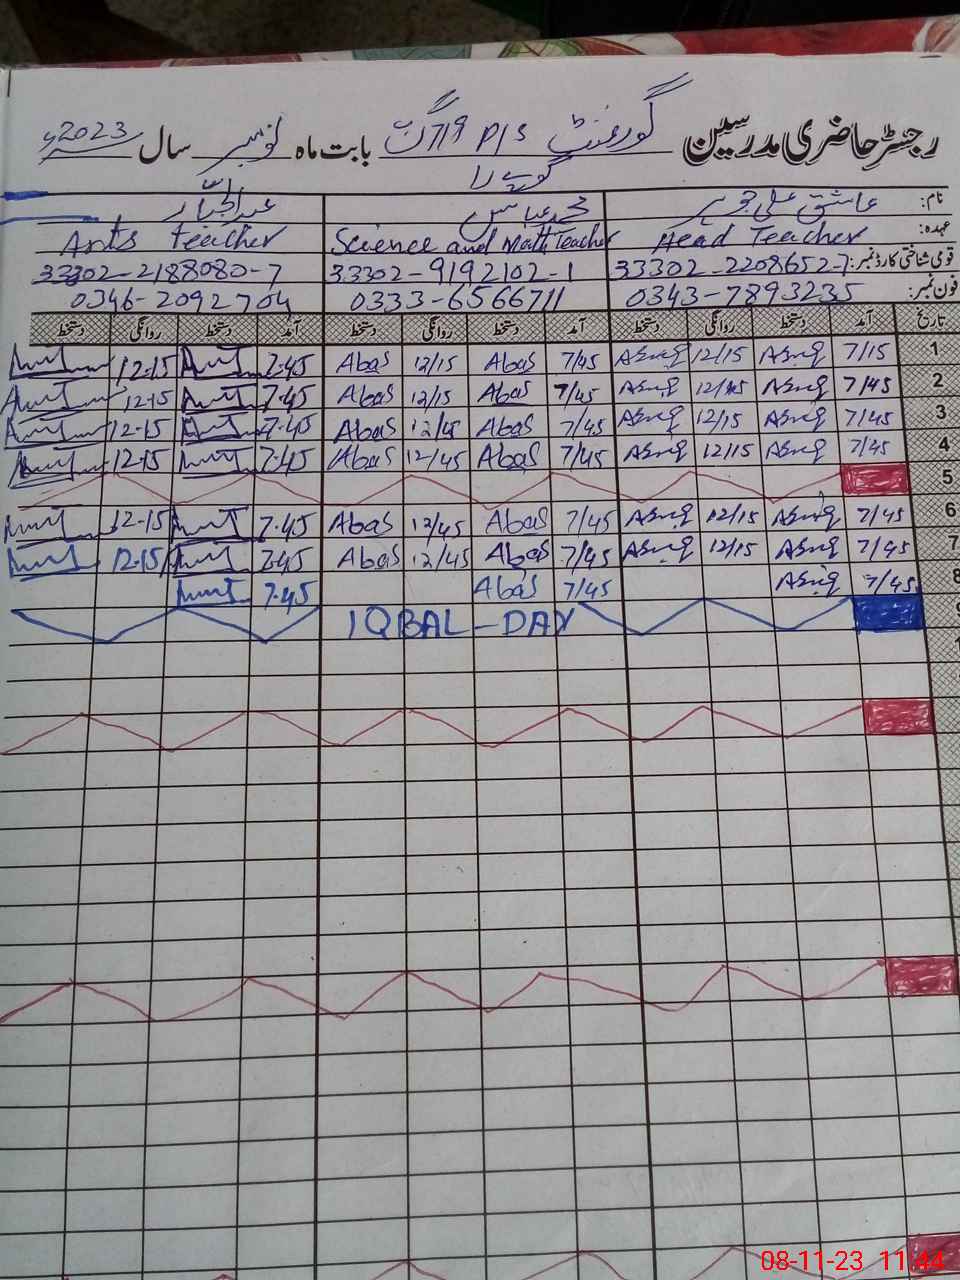 رجسٹر حاضری مدرسین گورنمنٹ P/S 719 گ ب بابت ماہ نومبر سال 2023ء
نام: عاشق علی جوہر محمد عباس عبدالجبار
عہدہ: Head Teacher Science and Math Teacher Arts Teacher
قومی شناختی کارڈ نمبر: 33302-2208652-7 33302-9192102-1 33302-2188080-7
فون نمبر: 0343-7893235 0333-6566711 0346-2092704
تاریخ آمد دستخط روانگی دستخط آمد دستخط روانگی دستخط آمد دستخط روانگی دستخط
1 7/15 Asnq 12/15 Asnq 7/45 Abas 12/15 Abas 7.45 12.15
2 7/45 Asnq 12/45 Asnq 7/45 Abas 12/15 Abas 7.45 12.15
3 7/45 Asnq 12/15 Asnq 7/45 Abas 12/45 Abas 7.45 12.15
4 7/45 Asnq 12/15 Asnq 7/45 Abas 12/45 Abas 7.45 12.15
5
6 7/45 Asnq 12/15 Asnq 7/45 Abas 12/45 Abas 7.45 12.15
7 7/45 Asnq 12/15 Asnq 7/45 Abas 12/45 Abas 7.45 12.15
8 7/45 Asnq 7/45 Abas 7.45
9 IQBAL-DAY
08-11-23 11:44